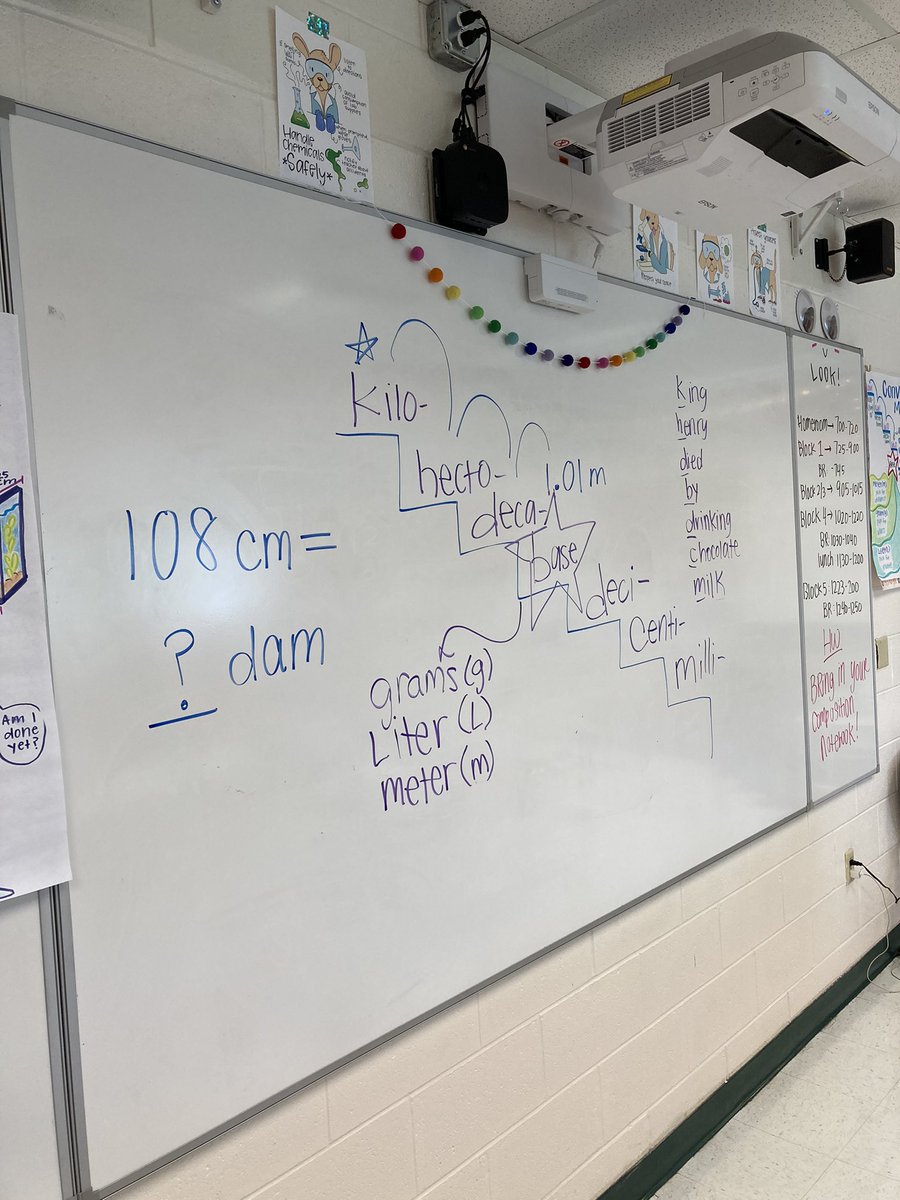 Handle
chemicals
*Safely*
EPSON
kilo-
hecto-
deca-
1.01m
base
deci-
centi-
milli-
108 cm =
? dam
grams (g)
Liter (L)
meter (m)
king
henry
died
by
drinking
chocolate
milk
LOOK!
Homeroom → 700-720
Block 1 → 725-900
BR: 745
Block 2/3 → 905-1015
Block 4 → 1020-1220
BR 1030-1040
lunch 1130-1200
Block 5: 1223-200
BR: 1240-1250
HW
Bring in your
composition
notebook!
Am I
done
yet?